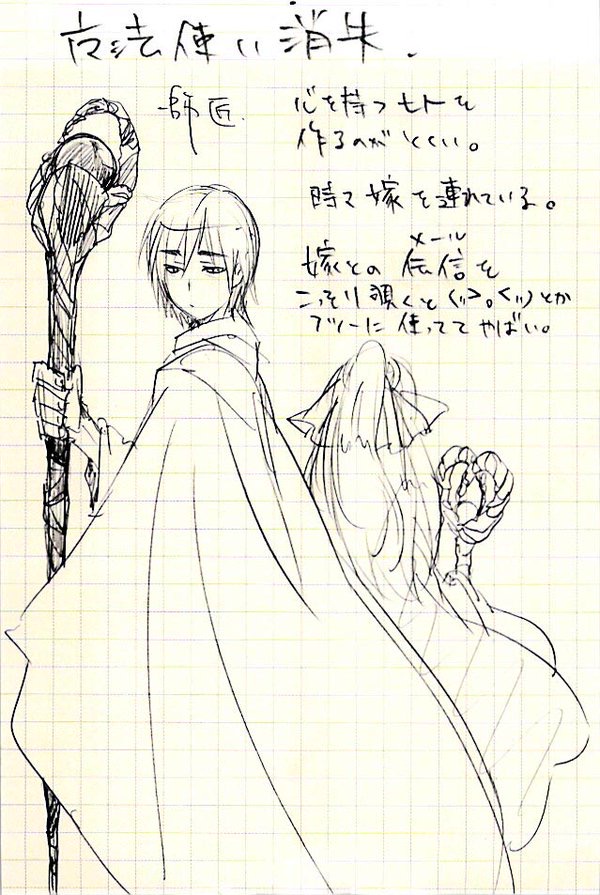 魔法使い消失.
師匠.
心を持つヒトを
作るのがとくい。
時々嫁を連れている。
メール
嫁との伝信を
こっそり覗くと(ﾘ>。<ﾘ)とか
フツーに使っててやばい。